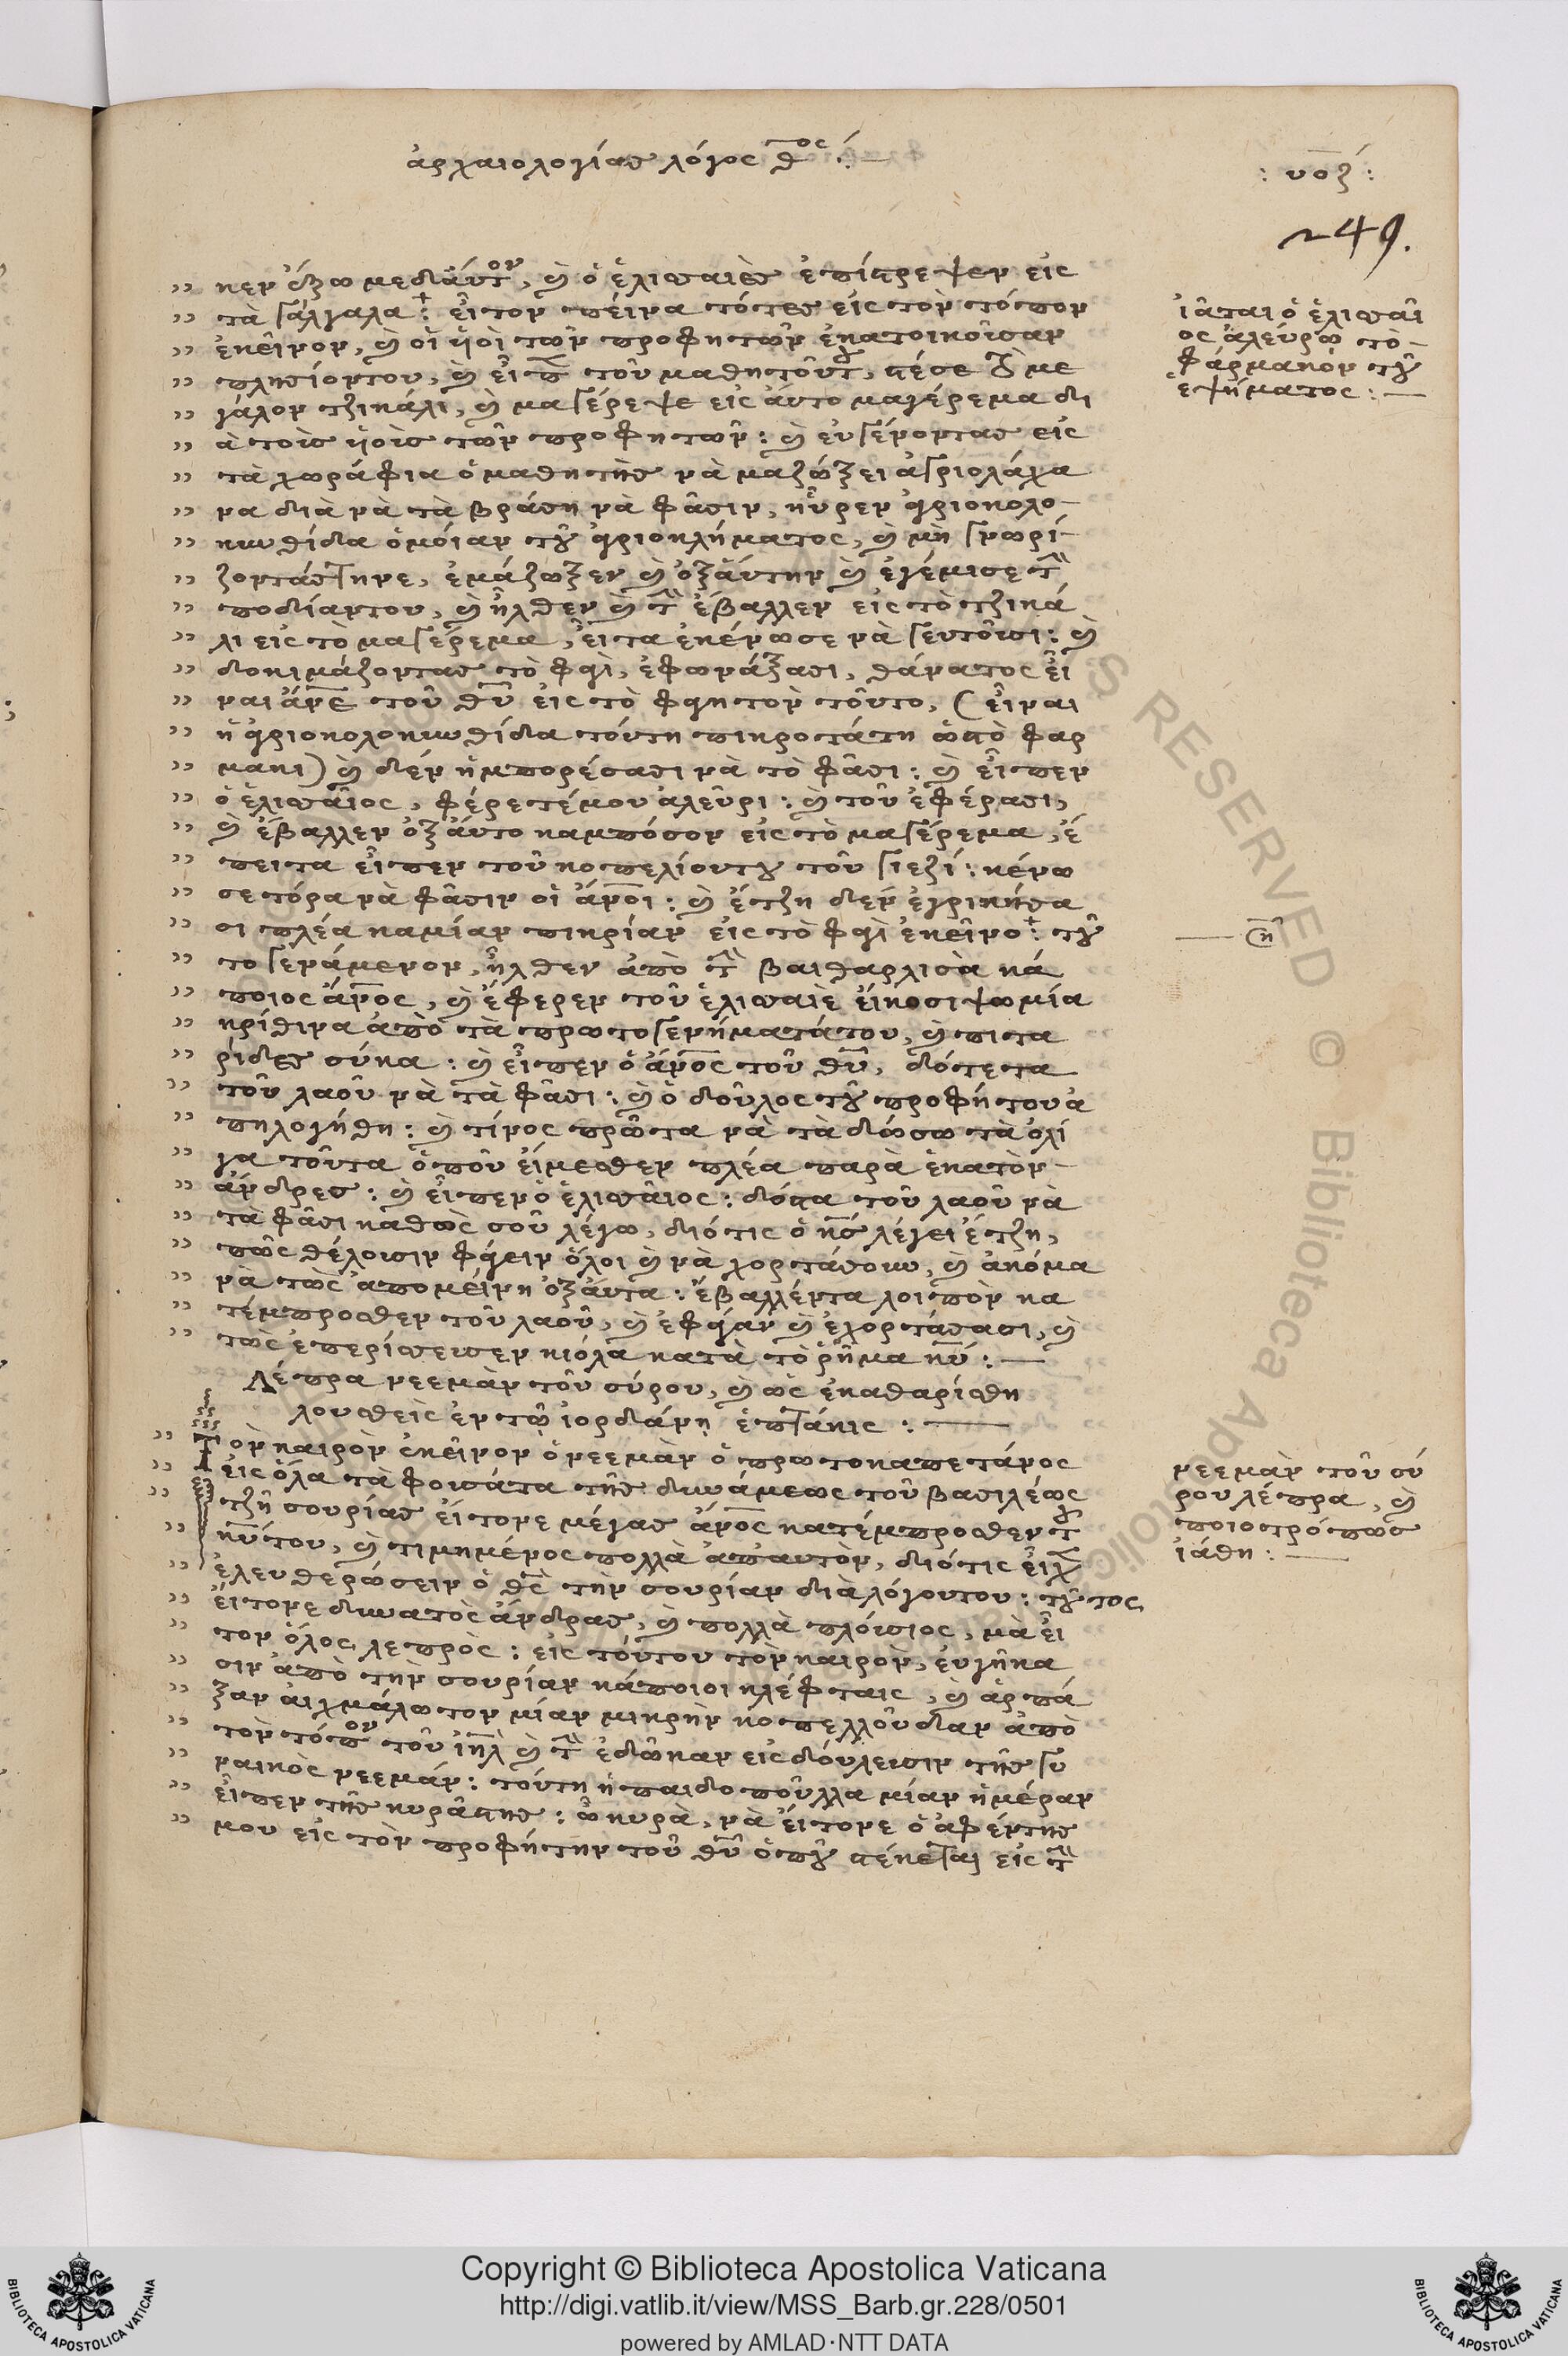 ἀρχαιολογίας λόγος θ^ος :—
: υοζ :
249.
νεν ἔξω μεδἀυτ^ον, καὶ ὁ ἐλισσαιὲς ἐπίστρεψεν εἰς
τὰ γάλγαλα : εἶτον πεῖνα τότες εἰς τὸν τόπον
ἐκεῖνον, καὶ οἱ ὑοὶ τῶν προφητῶν ἐκατοικοῦσαν
πλησίοντου, καὶ εἶπ τοῦ μαθητοῦτ, στέσε με
γάλον τζικάλι, καὶ μαγέρεψε εἰς ἄυτο μαγέρεμα δι
ὰ τοὺς ὑοὺς τῶν προφητῶν : καὶ ἐυγένοντας εἰς
τὰ χωράφια ὁ μαθητὴς νὰ μαζώξει ἀγριολάχα
να διὰ νὰ τὰ βράση νὰ φᾶσιν, ηὗρεν ἀγριοκολο-
κυνθίδα ὁμοίαν τοῦ ἀγριοκλήματος, καὶ μὴ γνωρί-
ζοντάςτηνε, ἐμάζωξεν καὶ ὀξἄυτην καὶ ἐγέμισε τὴν
ποδίαντου, καὶ ἦλθεν καὶ τὴν ἔβαλλεν εἰς τὸ τζικά
λι εἰς τὸ μαγέρεμα, εἶτα ἐκένωσε νὰ γευτοῦσι : καὶ
δοκιμάζοντας τὸ φαγὶ, ἐφωνάξασι, θάνατος εἶ
ναι ἄνε τοῦ θυ εἰς τὸ φαγητὸν τοῦτο, (εἶναι
ἡ ἀγριοκολοκυνθίδα τούτη πικροτάτη ὡσπὸ φαρ
μάκι) καὶ δὲν ἠμπορέσασι νὰ τὸ φᾶσι : καὶ εἶπεν
ὁ ἐλισσαῖος, φέρετέμου ἀλεῦρι : καὶ τοῦ ἐφέρασι,
καὶ ἔβαλλεν ὀξἄυτο καμπόσον εἰς τὸ μαγέρεμα, ἔ
πειτα εἶπεν τοῦ κοπελίουτου τοῦ γιεζί : κένω
σε τόρα νὰ φᾶσιν οἱ ἄνοι : καὶ ἔτζη δὲν ἐγρικήσα
σι πλέα καμίαν πικρίαν εἰς τὸ φαγὶ ἐκεῖνο : τοῦ
το γενάμενον, ἦλθεν ἀπὸ τὴν βαιθαρλισὰ κά
ποιος ἄνος, καὶ ἔφερεν τοῦ ἐλισσαιὲ εἴκοσι ψωμία
κρίθινα ἀπὸ τὰ πρωτογενήματάτου, καὶ πιτα
ρίδες σύκα : καὶ εἶπεν ὁ ἄνος τοῦ θυ, δότετα
τοῦ λαοῦ νὰ τὰ φᾶσι : καὶ ὁ δοῦλος τοῦ προφήτου ἀ
πηλογήθη : καὶ τίνος πρῶτα νὰ τὰ δώσω τὰ ὀλί
γα τοῦτα ὁποῦ εἴμεσθεν πλέα παρὰ ἑκατὸν-
ἄνδρες : καὶ εἶπεν ὁ ἐλισσαῖος : δόστα τοῦ λαοῦ νὰ
τὰ φᾶσι καθὼς σοῦ λέγω, διότις ὁ κς λέγει ἔτζη,
πῶς θέλουσιν φάγειν ὅλοι καὶ νὰ χορτάσουν, καὶ ἀκόμα
νὰ τῶς ἀπομείνη ὀξἄυτα : ἔβαλλέντα λοιπὸν κα
τέμπροσθεν τοῦ λαοῦ, καὶ ἐφάγαν καὶ ἐχορτάσασι, καὶ
τῶς ἐπερίσσευσεν κιόλα κατὰ τὸ ῥῆμα κυ :—
Λέπρα νεεμὰν τοῦ σύρου, καὶ ὡς ἐκαθαρίσθη
λουσθεὶς ἐν τῷ ἰορδάνῃ ἑπτάκις :—
Τὸν καιρὸν ἐκεῖνον ὁ νεεμὰν ὁ πρωτοκαπετάνος
εἰς ὅλα τὰ φουσάτα τῆς δυνάμεως τοῦ βασιλέως
τζῆ σουρίας εἴτονε μέγας ἄνος κατέμπροσθεν τοῦ
κυτου, καὶ τιμημένος πολλὰ ἀπαυτὸν, διότις εἶχ
ἐλευθερώσειν ὁ θς τὴν σουρίαν διὰ λόγουτου : τοῦτος
εἴτονε δυνατὸς ἄνδρας, καὶ πολλὰ πλούσιος, μὰ εἶ
τον ὅλος λεπρὸς : εἰς τούτον τὸν καιρὸν, ἐυγῆκα
σιν ἀπὸ τὴν σουρίαν κάποιοι κλέφταις, καὶ ἁρπά
ξαν αἰχμάλωτον μίαν μικρὴν κοπελλοῦδαν ἀπὸ
τὸν τόπ^ον τοῦ ἰηλ καὶ τὴν ἐδῶκαν εἰς δούλευσιν τῆς γυ
ναικὸς νεεμάν : τούτη ἡ παιδοποῦλλα μίαν ἡμέραν
εἶπεν τῆς κυρᾶστης : ὦ κυρὰ, νὰ εἴτονε ὁ ἀφέντης
μου εἰς τὸν προφήτην τοῦ θυ ὁποῦ στέκεται εἰς τὴν
ἰᾶται ὁ ἐλισσαῖ
ος ἀλεύρῳ τὸ-
φάρμακον τοῦ
ἑψήματος :—
— η
νεεμὰν τοῦ σύ
ρου λέπρα, καὶ
ποιοτρόπως
ἰάθη :—
Copyright © Biblioteca Apostolica Vaticana
http://digi.vatlib.it/view/MSS_Barb.gr.228/0501
powered by AMLAD·NTT DATA